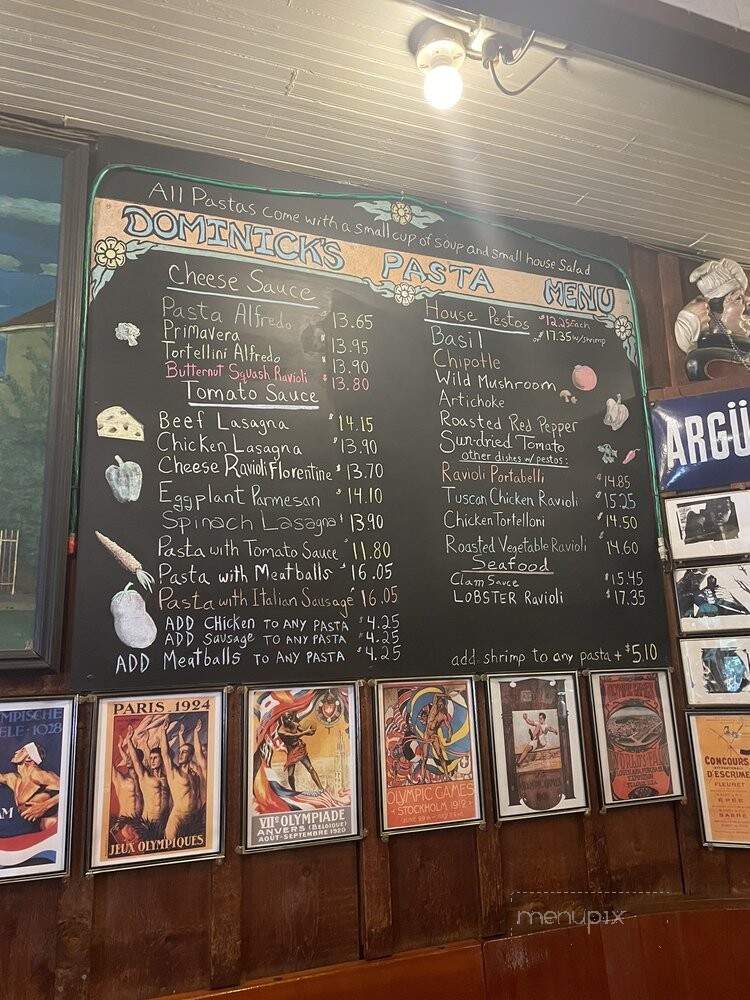 All Pastas come with a small cup of soup and small house Salad
DOMINICK'S PASTA MENU
Cheese Sauce
Pasta Alfredo $13.65
Primavera $13.95
Tortellini Alfredo $13.90
Butternut Squash Ravioli $13.80
Tomato Sauce
Beef Lasagna $14.15
Chicken Lasagna $13.90
Cheese Ravioli Florentine $13.70
Eggplant Parmesan $14.10
Spinach Lasagna $13.90
Pasta with Tomato Sauce $11.80
Pasta with Meatballs $16.05
Pasta with Italian Sausage $16.05
ADD Chicken TO ANY PASTA $4.25
ADD Sausage TO ANY PASTA $4.25
ADD Meatballs TO ANY PASTA $4.25
House Pestos $12.25 Each
or $17.35 w/shrimp
Basil
Chipotle
Wild Mushroom
Artichoke
Roasted Red Pepper
Sun-dried Tomato
other dishes w/ pestos:
Ravioli Portabelli $14.85
Tuscan Chicken Ravioli $15.25
Chicken Tortelloni $14.50
Roasted Vegetable Ravioli $14.60
Seafood
Clam Sauce $15.45
LOBSTER Ravioli $17.35
add shrimp to any pasta + $5.10
ARGÜ
MPISCHE
ELE·1928
AM
PARIS_1924
JEUX OLYMPIQUES
VIIe OLYMPIADE
ANVERS (BELGIQUE)
AOUT-SEPTEMBRE 1920
OLYMPIC GAMES
STOCKHOLM 1912
CONCOURS
D'ESCRIME
FLEURET
EPEE
SABRE
menupix